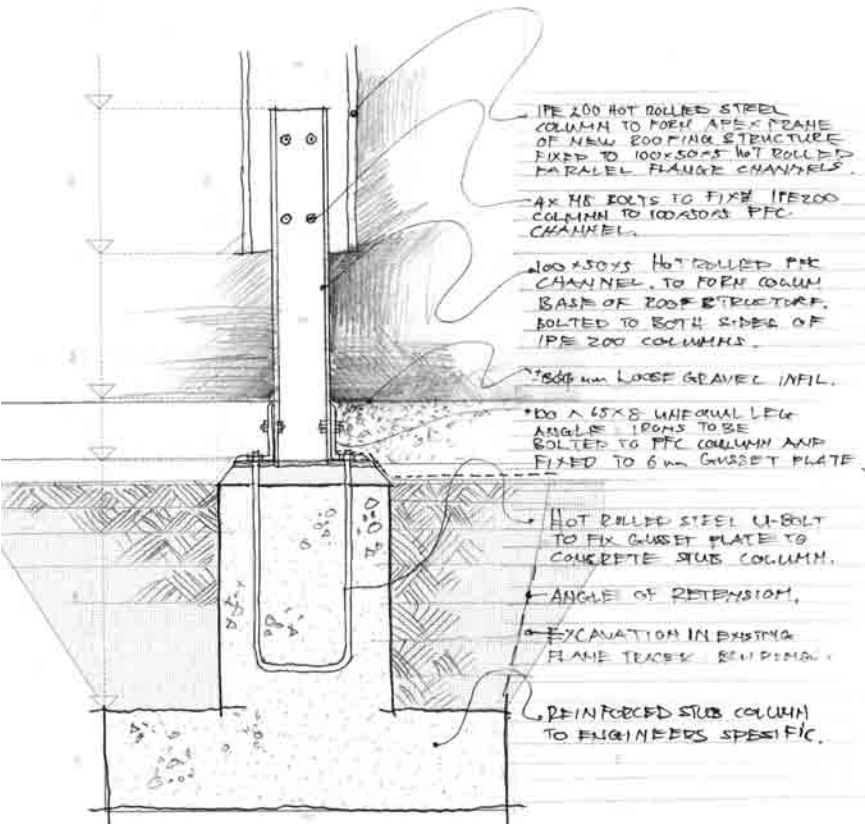 IPE 200 HOT ROLLED STEEL
COLUMN TO FORM APEX FRAME
OF NEW ROOFING STRUCTURE
FIXED TO 100x50x5 HOT ROLLED
PARALEL FLANGE CHANNELS.
4x M8 BOLTS TO FIX IPE200
COLUMN TO 100x50x5 PFC
CHANNEL.
100x50x5 HOT ROLLED PFC
CHANNEL. TO FORM COLUM
BASE OF ROOF STRUCTURE.
BOLTED TO BOTH SIDES OF
IPE 200 COLUMNS.
mm LOOSE GRAVEL INFIL.
100 x 65x8 UNEQUAL LEG
ANGLE IRONS TO BE
BOLTED TO PFC COLUMN AND
FIXED TO 6mm GUSSET PLATE.
HOT ROLLED STEEL U-BOLT
TO FIX GUSSET PLATE TO
CONCRETE STUB COLUMN.
ANGLE OF RETENSION.
EXCAVATION IN EXISTING
REINFORCED STUB COLUMN
TO ENGINEERS SPESIFIC.